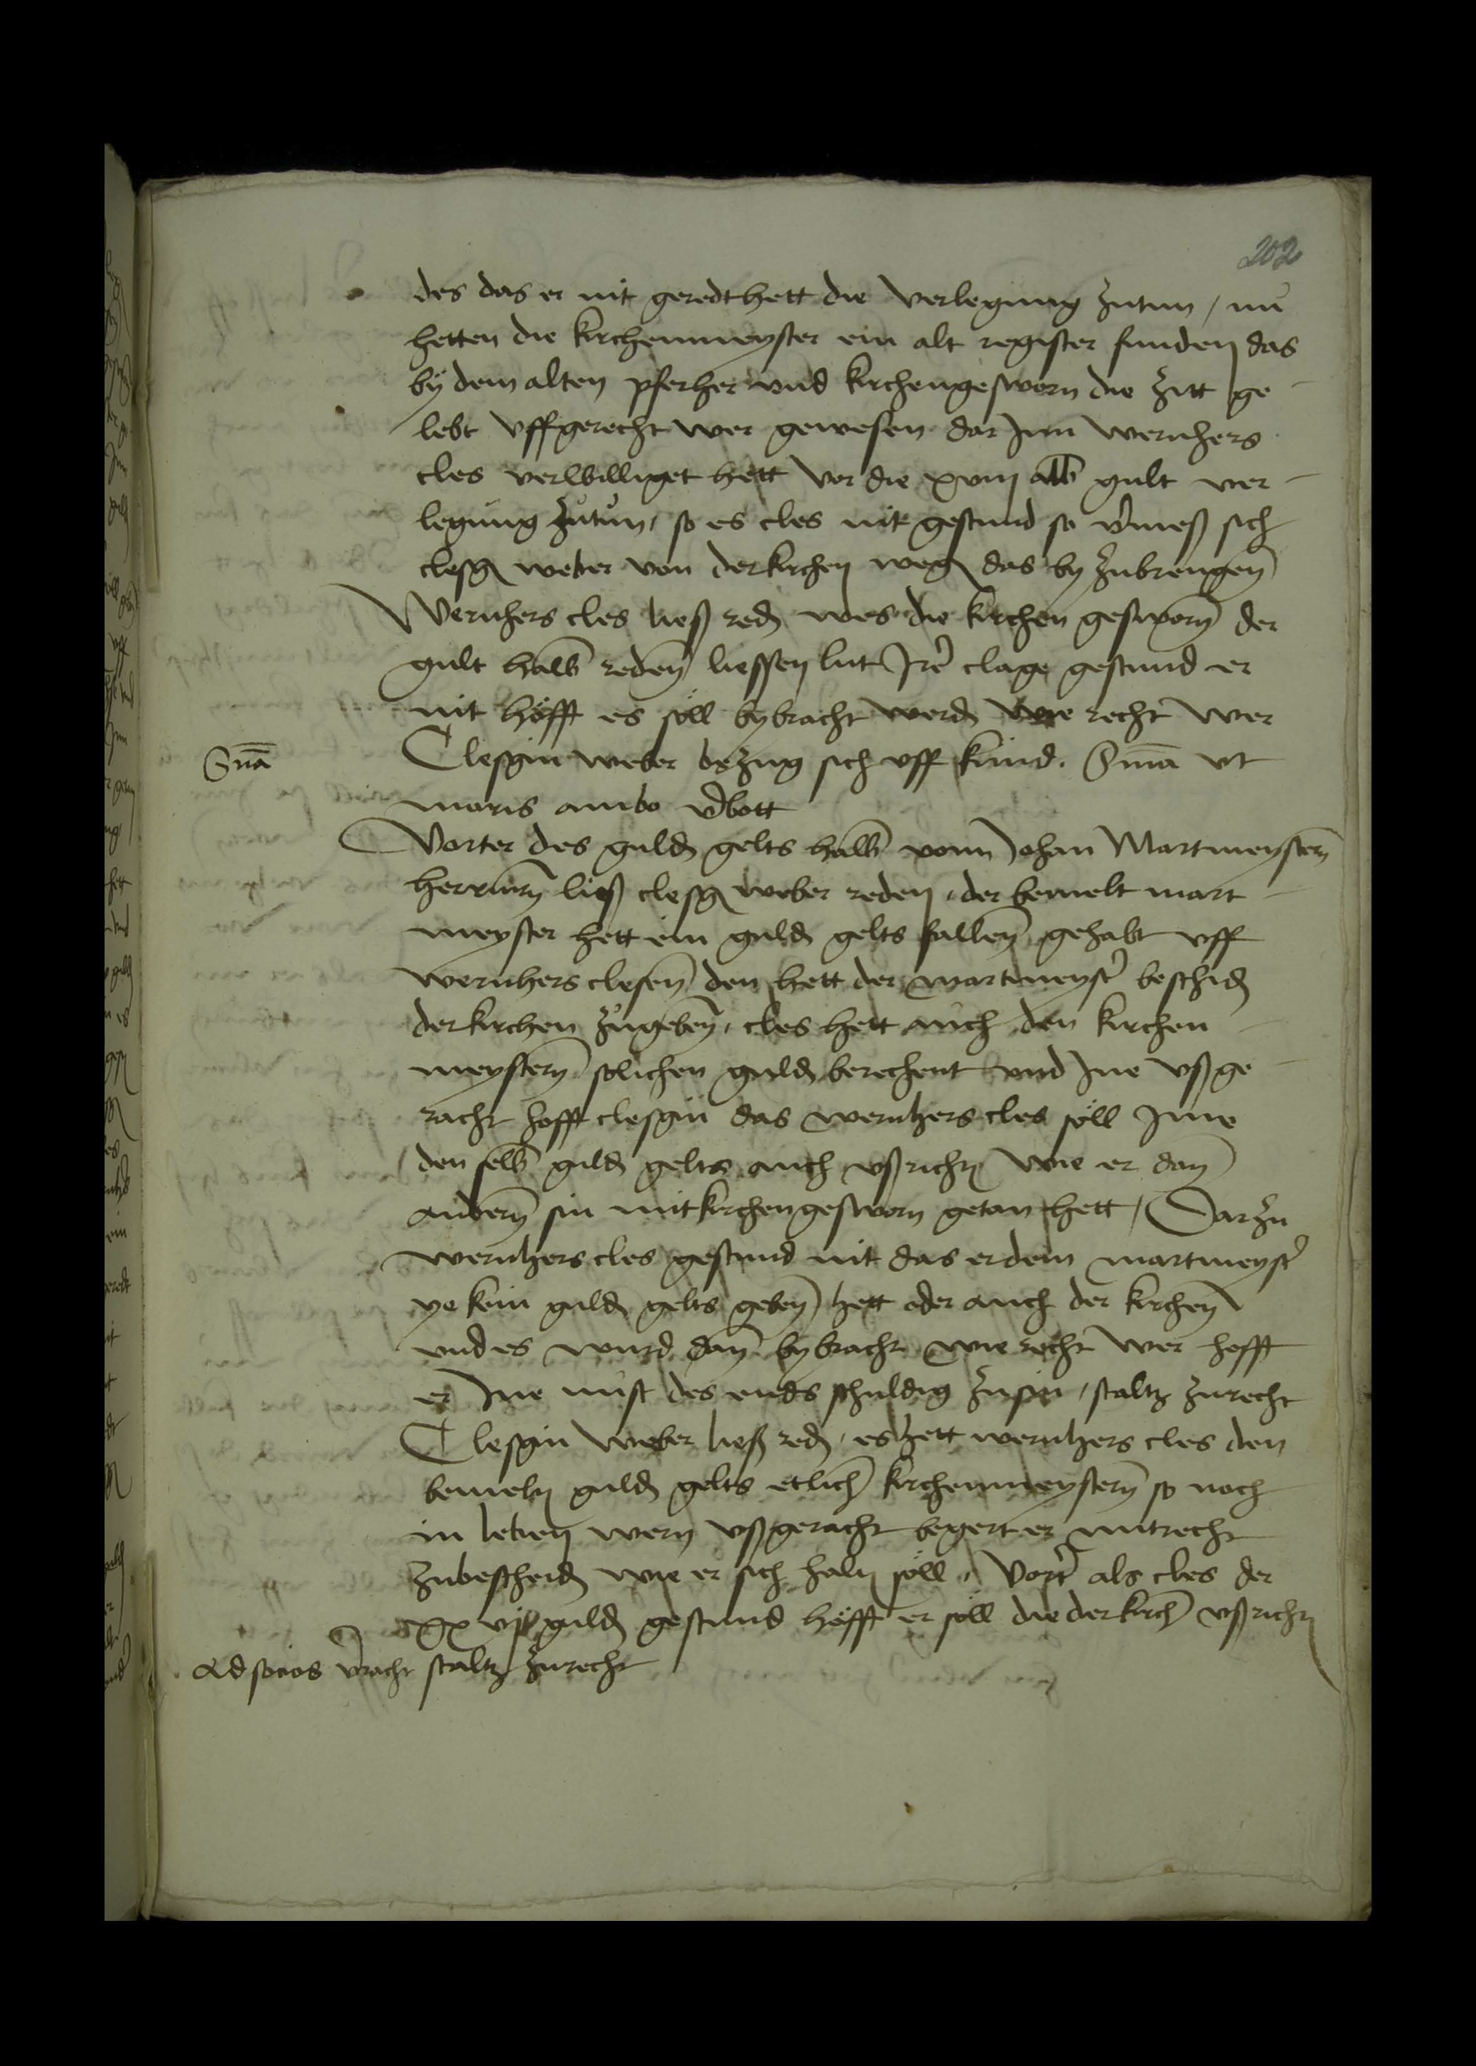 202
des das er nit geredt hett die verlegung zutun / nu
hetten die kirchenmeyster ein alt register funden das
by dem alten pferher vnd kirchengesworn die zitt ge-
lebt vffgerecht wer gewesen dar Jnn wernhers
cles verwilliget hett vor die xviij alb gult ver-
legung zutun / so es cles nit gestund so v'mess sich
clesgin weber von der kirchen wegen das by zubrengen
Wernhers cles liess red wes die kirchen gesworn der
gult halb reden liessen lut Jre clage gestund er
nit hofft es soll bybracht werd wie recht wer
Sn̄a Clesgin weber bezug sich vff kund. Sn̄ia vt
moris ambo v'bott
Vorter des guld gelts halb vom Johan Martmeystern
herruern liess clesgin weber reden / der bemelt mart-
meyster hett ein guld gelts fallen gehabt vff
wernhers clesen den hett der martmeyst' beschid
der kirchen zugeben / cles hett auch den kirchen-
meystern solichen guld berechent vnd Jne vssge-
racht hofft clesgin das wernhers cles soll Jme
den selb guld gelts auch vssricht wie er dan
andern sin mitkirchengesworn getan hett / Darzu
wernhers cles gestund nit das er dem martmeyst'
ye kein guld gelts geben hett oder auch der kirchen
vnd es wurd dan bybracht wie recht wer hofft
er Jne nust des ends schuldig zusin / staltz zurecht
Clesgin weber liess red / es hett wernhers cles den
bemeltn guld gelts etlich kirchenmeystern so noch
in leben wern vssgeracht begert er mit recht
zubescheid wie er sich haltn soll / Vort' als cles der
guld gestund hofft er soll die der kirch vssricht
Ad socios v'racht staltz zurecht